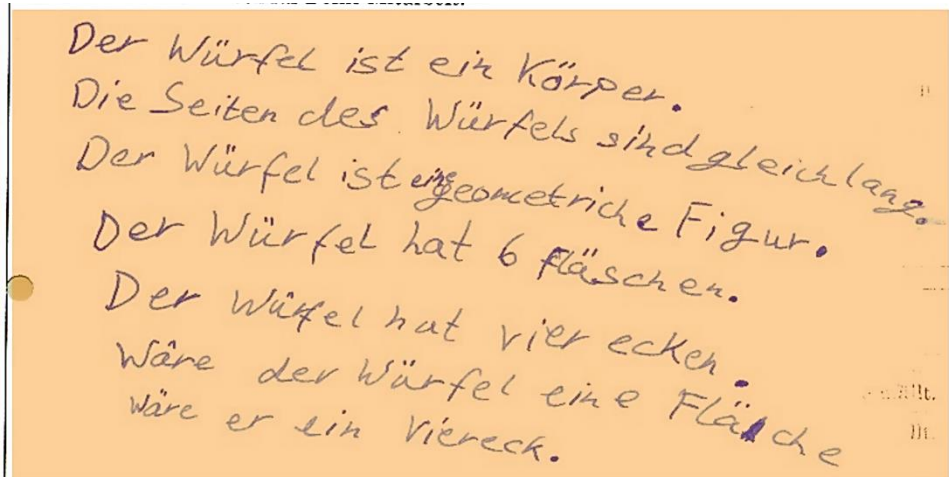 Der Würfel ist ein Körper.
Die Seiten des Würfels sind gleichlang.
Der Würfel ist eine geometriche Figur.
Der Würfel hat 6 Fläschen.
Der Würfel hat vier ecken.
Wäre der Würfel eine Fläche
wäre er ein Viereck.